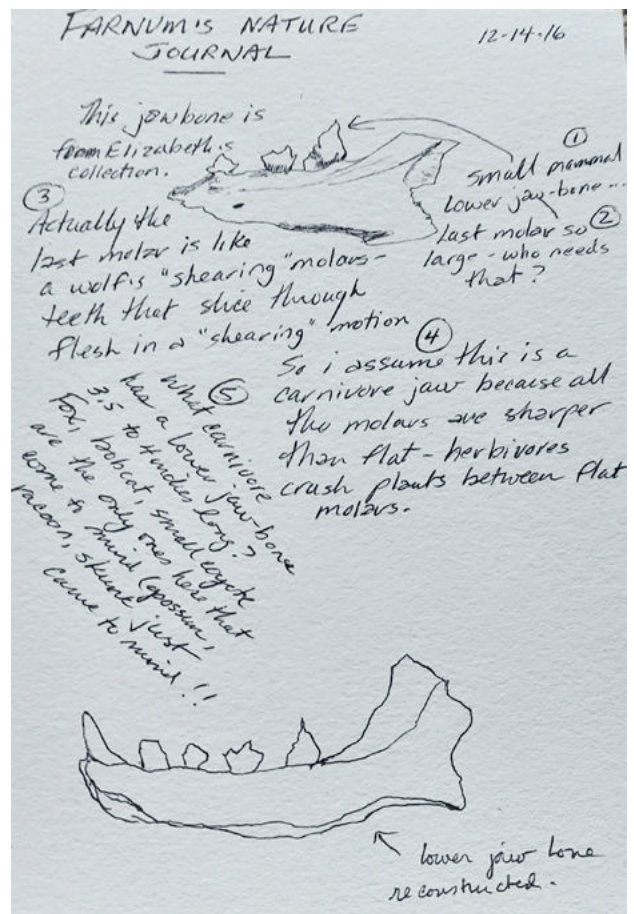 FARNUM'S NATURE
JOURNAL
12-14-16
This jawbone is
from Elizabeth's
collection.
①
small mammal
lower jaw-bone...
②
Last molar so
large - who needs
that?
③
Actually the
last molar is like
a wolf's "shearing" molars-
teeth that slice through
flesh in a "shearing" motion
④
So i assume this is a
carnivore jaw because all
the molars are sharper
than flat - herbivores
crush plants between flat
molars.
⑤
What carnivore
has a lower jaw-bone
3.5 to 4 inches long?
Fox, bobcat, small coyote
are the only ones here that
come to mind (opossum,
racoon, skunk just
came to mind!!
lower jaw bone
reconstructed.